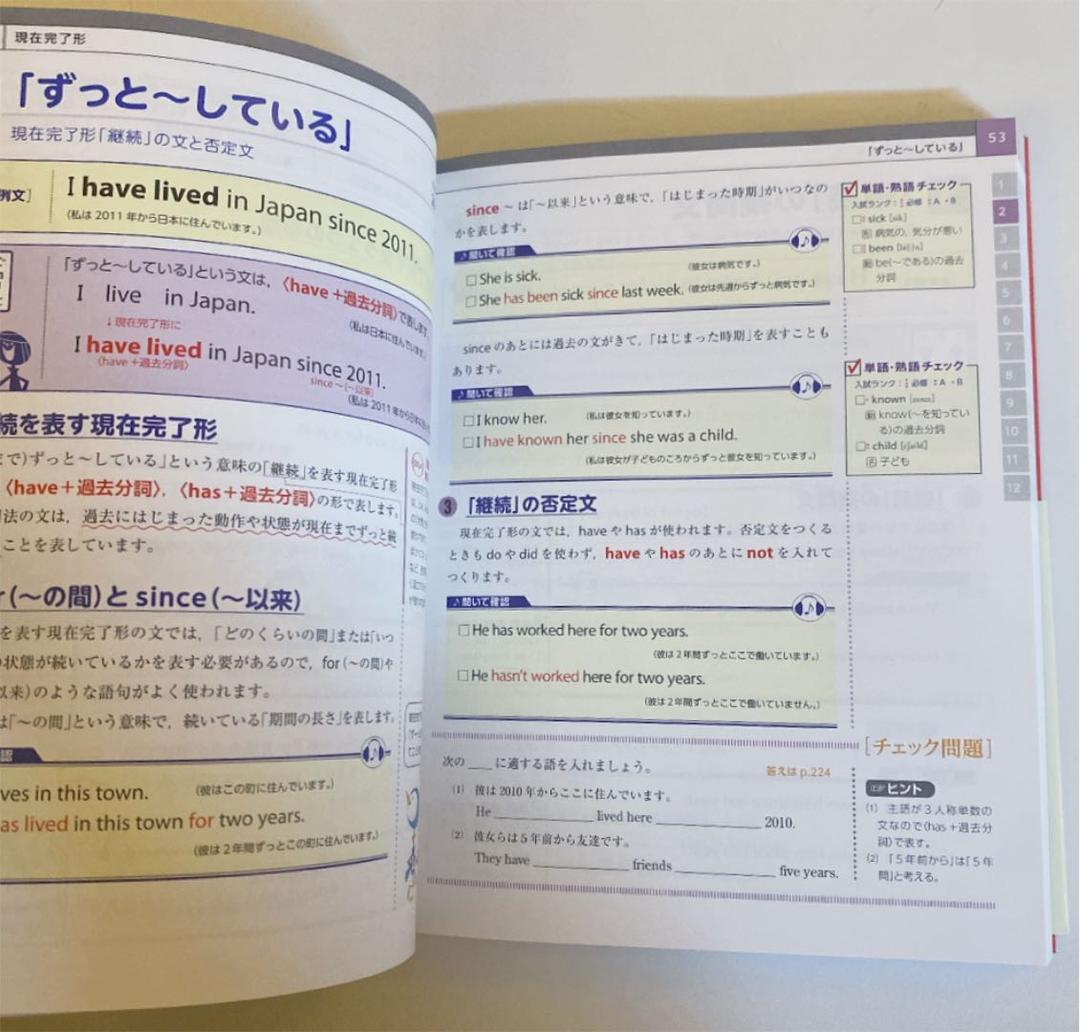 現在完了形
「ずっと〜している」
現在完了形「継続」の文と否定文
例文]
I have lived in Japan since 2011.
(私は 2011 年から日本に住んでいます。)
「ずっと〜している」という文は,〈have+過去分詞〉で表します
I live in Japan.
(私は日本に住んでいます。)
↓現在完了形に
I have lived in Japan since 2011.
〈have+過去分詞〉
since 〜(〜以来)
(私は 2011 年から日本に
続を表す現在完了形
まで)ずっと〜している」という意味の「継続」を表す現在完了形
〈have+過去分詞〉,〈has+過去分詞〉の形で表します。
用法の文は,過去にはじまった動作や状態が現在までずっと続
ことを表しています。
r(〜の間)と since(〜以来)
を表す現在完了形の文では,「どのくらいの間」または「いつ
状態が続いているかを表す必要があるので, for(〜の間)や
以来)のような語句がよく使われます。
は「〜の間」という意味で, 続いている「期間の長さ」を表します。
認
ves in this town.
(彼はこの町に住んでいます。)
as lived in this town for two years.
(彼は2年間ずっとこの町に住んでいます。)
「ずっと〜している」
53
since 〜 は「〜以来」という意味で,「はじまった時期」がいつなの
かを表します。
♪聞いて確認
□She is sick.
(彼女は病気です。)
□She has been sick since last week.
(彼女は先週からずっと病気です。)
since のあとには過去の文がきて,「はじまった時期」を表すことも
あります。
♪聞いて確認
□I know her.
(私は彼女を知っています。)
□I have known her since she was a child.
(私は彼女が子どものころからずっと彼女を知っています。)
3 「継続」の否定文
現在完了形の文では, have や has が使われます。否定文をつくる
ときも do や did を使わず, have や has のあとに not を入れて
つくります。
♪聞いて確認
□He has worked here for two years.
(彼は2年間ずっとここで働いています。)
□He hasn't worked here for two years.
(彼は2年間ずっとここで働いていません。)
単語・熟語チェック
入試ランク: 必修 :A ・B
□ sick [sik]
形 病気の, 気分が悪い
□ been
動 be(〜である)の過去
分詞
単語・熟語チェック
入試ランク: 必修 :A ・B
□ known
動 know(〜を知ってい
る)の過去分詞
□ child
名 子ども
1
2
3
4
5
6
7
8
9
10
11
12
[チェック問題]
次の ____ に適する語を入れましょう。
答えは p.224
(1) 彼は 2010 年からここに住んでいます。
He ____ lived here ____ 2010.
(2) 彼女らは5年前から友達です。
They have ____ friends ____ five years.
ヒント
(1) 主語が3人称単数の
文なので〈has+過去分
詞〉で表す。
(2) 「5年前から」は「5年
間」と考える。